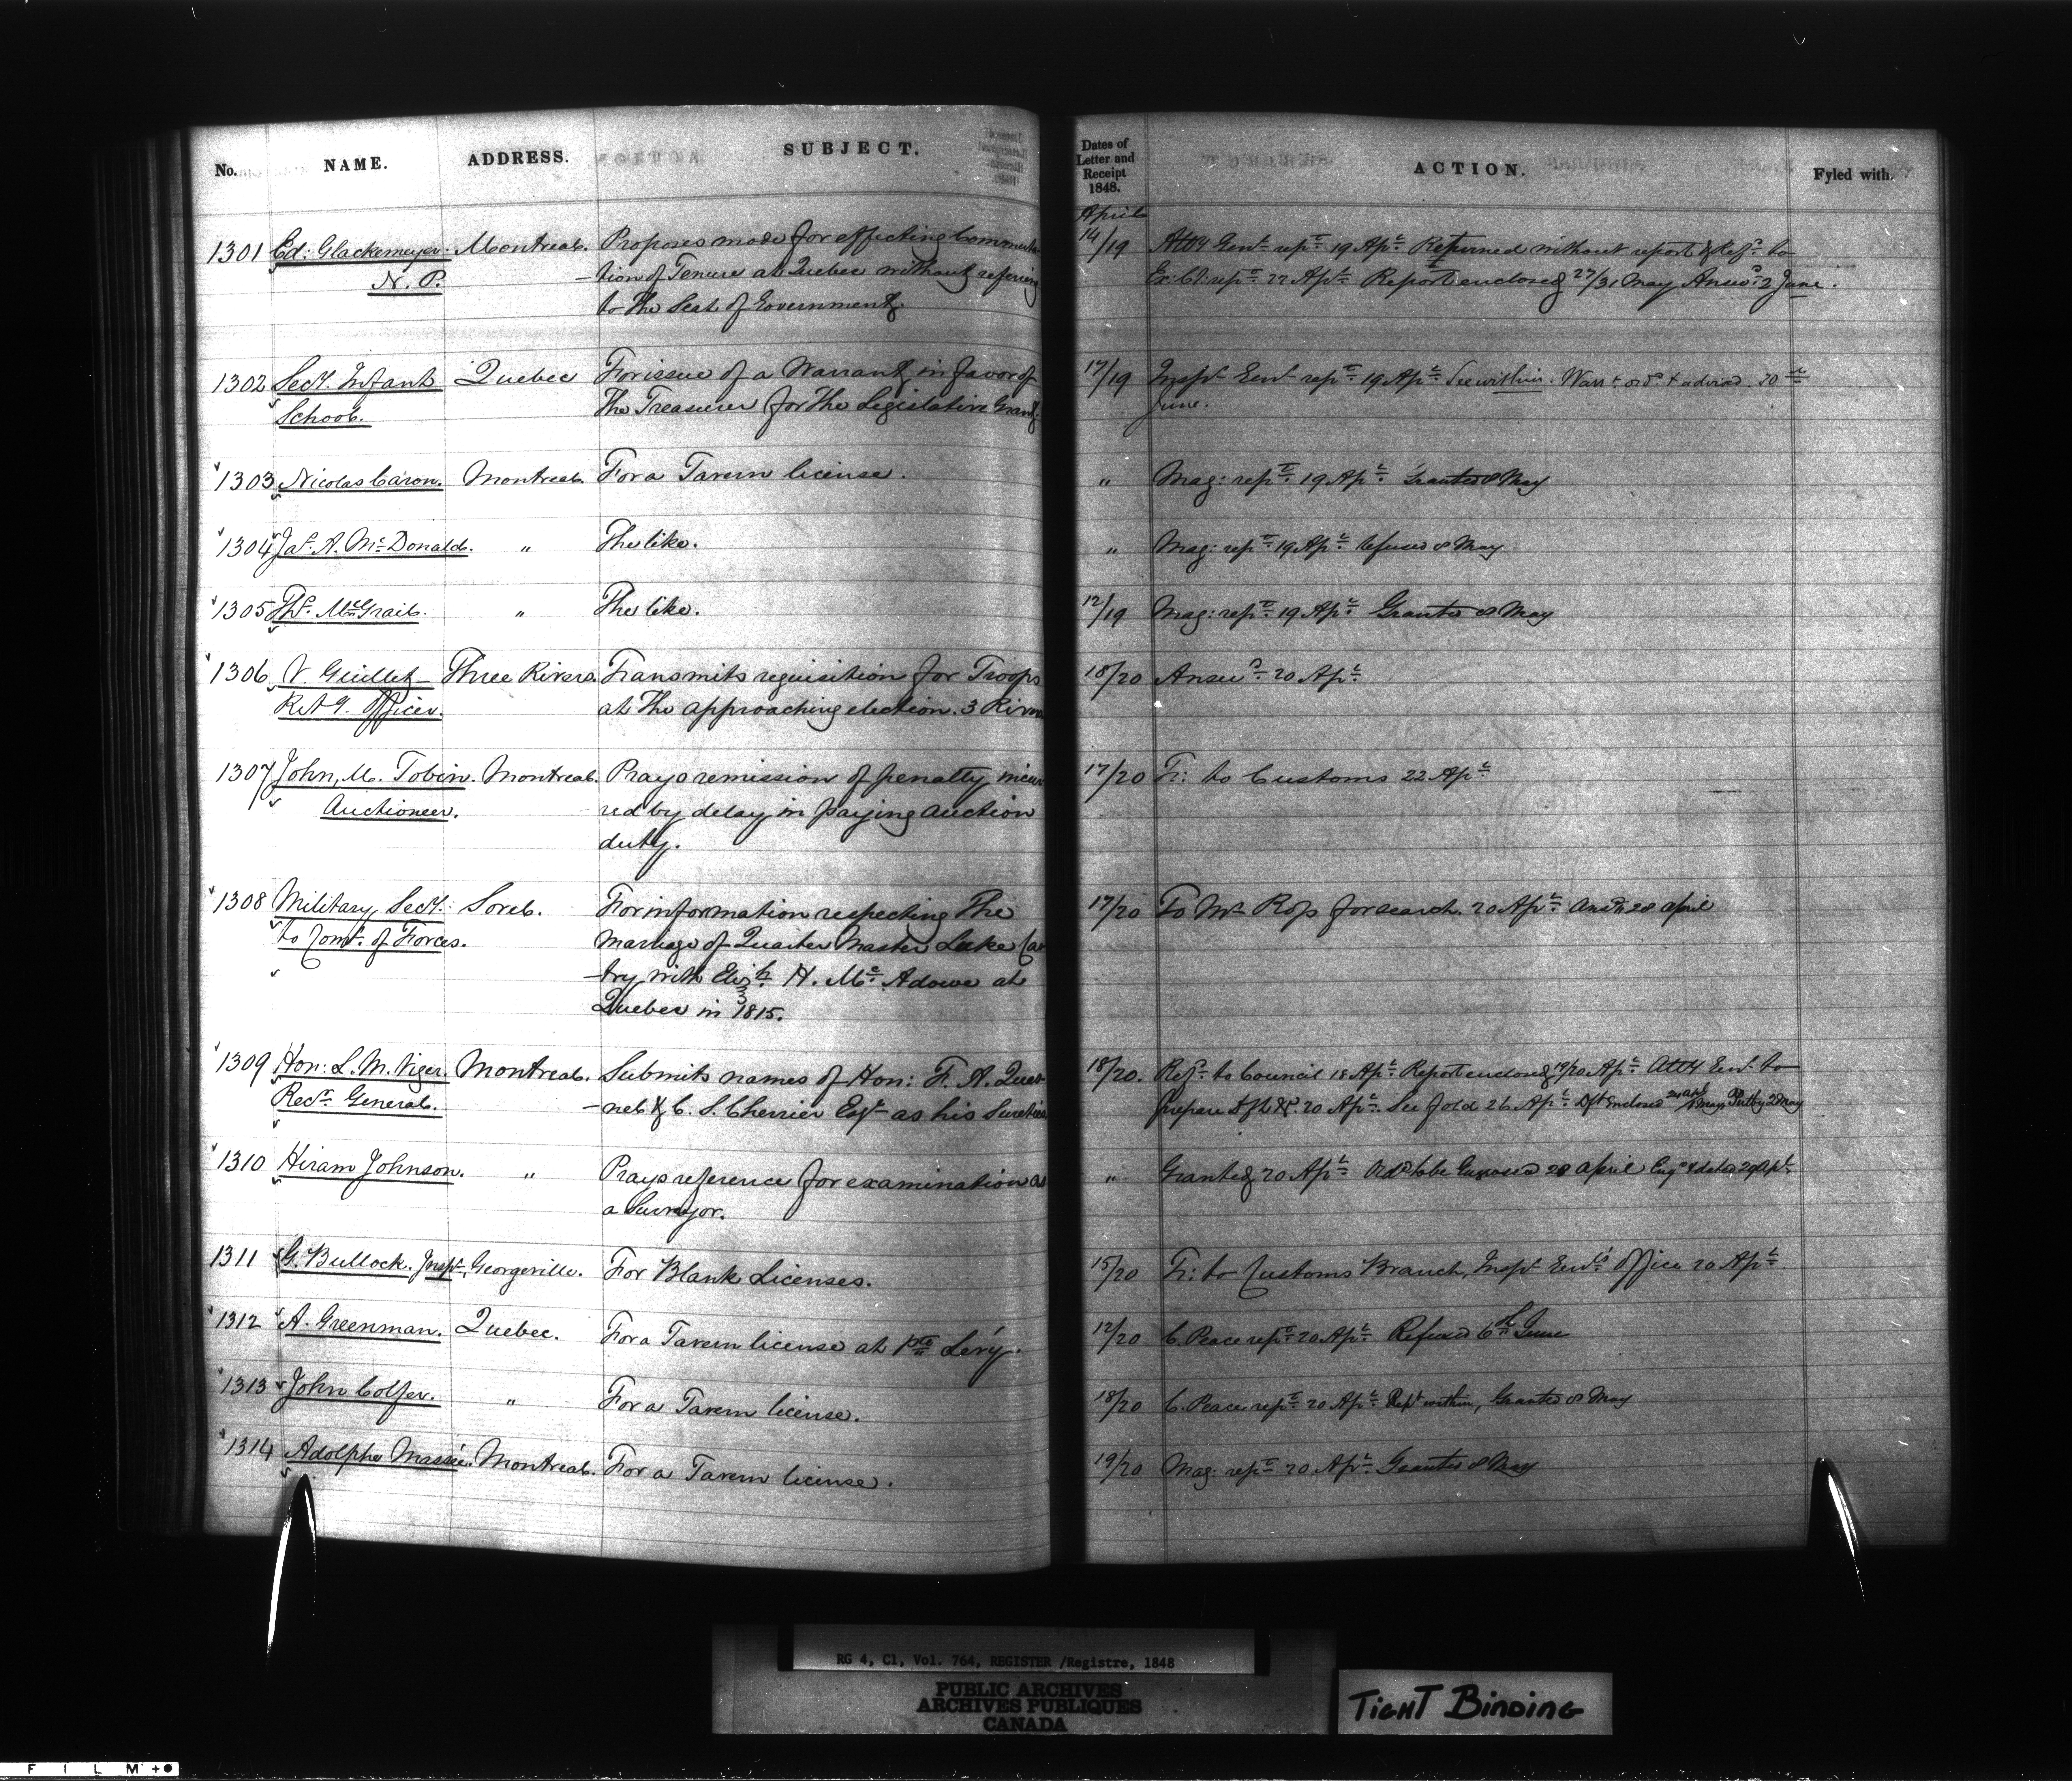 No. NAME. ADDRESS. SUBJECT.
Dates of Letter and Receipt 1848. ACTION. Fyled with.
April
1301 Ed: Glackemeyer Montreal. Proposes mode for effecting Commuta-
N. P. tion of Tenure at Quebec without referring
to the Seat of Government.
14/19 Atty Genl rept 19 Apl Returned without report & Refd to
Ex: Cl: rept 22 Apl Report enclosed 27/31 May Answd 2 June.
1302 Secy. Infant Quebec For issue of a Warrant in favor of
School. The Treasurer for the Legislative Grant.
17/19 Inspr Genl rept 19 Apl See within. Warrt ordd & advised 30th
June.
1303 Nicolas Caron. Montreal. For a Tavern license.
" Mag: rept 19 Apl Granted 8 May
1304 Jas. A. McDonald. " The like.
" Mag: rept 19 Apl Refused 8 May
1305 Ths. McGrail. " The like.
12/19 Mag: rept 19 Apl Granted 8 May
1306 V. Guillet Three Rivers. Transmits requisition for Troops
Retg. Officer. at the approaching election. 3 Rivers
18/20 Answd 20 Apl
1307 John M. Tobin. Montreal. Prays remission of penalty incur
Auctioneer. red by delay in paying auction
duty.
17/20 Fr: to Customs 22 Apl
1308 Military Secy. Sorel. For information respecting the
to Comr. of Forces. marriage of Quarter Master Luke
try with Elizh H. Mc Adowe at
Quebec in 1815.
17/20 To Mr Ross for search. 20 Apl Ansd 28 april
1309 Hon: L. M. Viger. Montreal. Submits names of Hon: F. A. Ques
Recr. General. nel & C. S. Cherrier Esqr as his Sureties
18/20. Refd to Council 18 Apl Report enclosed 19/20 Apl Atty Genl to
prepare dft &c. 20 Apl See fold 26 Apl Dft enclosed May 2 May
1310 Hiram Johnson. " Prays reference for examination as
a Surveyor.
" Granted 20 Apl Ordd to be Engrossed 28 april Engd & dated 29 Apl.
1311 G. Bullock. Inspr. Georgeville. For Blank Licenses.
15/20 Fr: to Customs Branch, Inspr Genl's Office 20 Apl
1312 A. Greenman. Quebec. For a Tavern license at Pte Lévy.
12/20 C. Peace rept 20 Apl Refused 6th June
1313 John Colfer. " For a Tavern license.
18/20 C. Peace rept 20 Apl Rept within, Granted 8 May
1314 Adolphe Massée. Montreal. For a Tavern license.
19/20 Mag: rept 20 Apl Granted 8 May
RG 4, C1, Vol. 764, REGISTER /Registre, 1848
PUBLIC ARCHIVES
ARCHIVES PUBLIQUES
CANADA
TIGHT BINDING
FILM